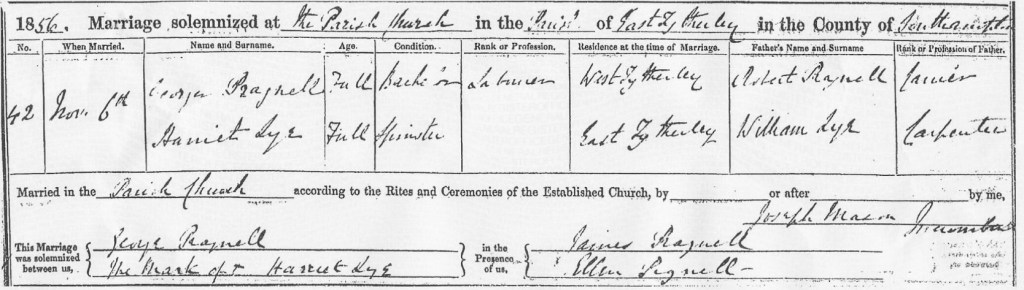 1856. Marriage solemnized at the Parish Church in the Parish of East Tytherley in the County of Southampton
No. When Married. Name and Surname. Age. Condition. Rank or Profession. Residence at the time of Marriage. Father's Name and Surname Rank or Profession of Father.
42 Nov. 6th George Pragnell Full Bachelor Labourer West Tytherley Robert Pragnell
Harriet Lye Full Spinster East Tytherley William Lye Carpenter
Married in the Parish Church according to the Rites and Ceremonies of the Established Church, by or after by me,
Joseph Mason Incumbent
This Marriage was solemnized between us, George Pragnell in the Presence of us, James Pragnell
The Mark of + Harriet Lye Ellen